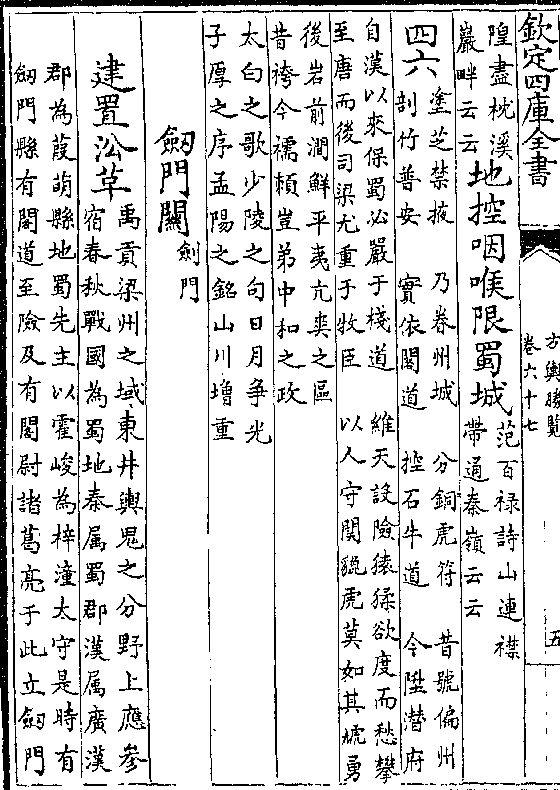 欽定四庫全書
方輿勝覽
卷六十七
五
隍盡枕溪
巖畔云云
地控咽喉限蜀城
范百禄詩山連襟
帶通秦嶺云云
四六
塗芝禁掖 乃眷州城 分銅虎符 昔號偏州
剖竹普安 實依閣道 控石牛道 今陞潜府
自漢以來保蜀必嚴于棧道 維天設險猿猱欲度而愁攀
至唐而後司梁尤重于牧臣 以人守関貔虎莫如其虓勇
後岩前澗鮮平夷亢爽之區
昔袴今襦頼豈弟中和之政
太白之歌少陵之句日月争光
子厚之序孟陽之銘山川增重
劔門關
劍門
建置㳂草
禹貢梁州之域東井輿鬼之分野上應参
宿春秋戰國為蜀地秦属蜀郡漢属廣漢
郡為葭萌縣地蜀先主以霍峻為梓潼太守是時有
劔門縣有閣道至險及有閣尉諸葛亮于此立劔門